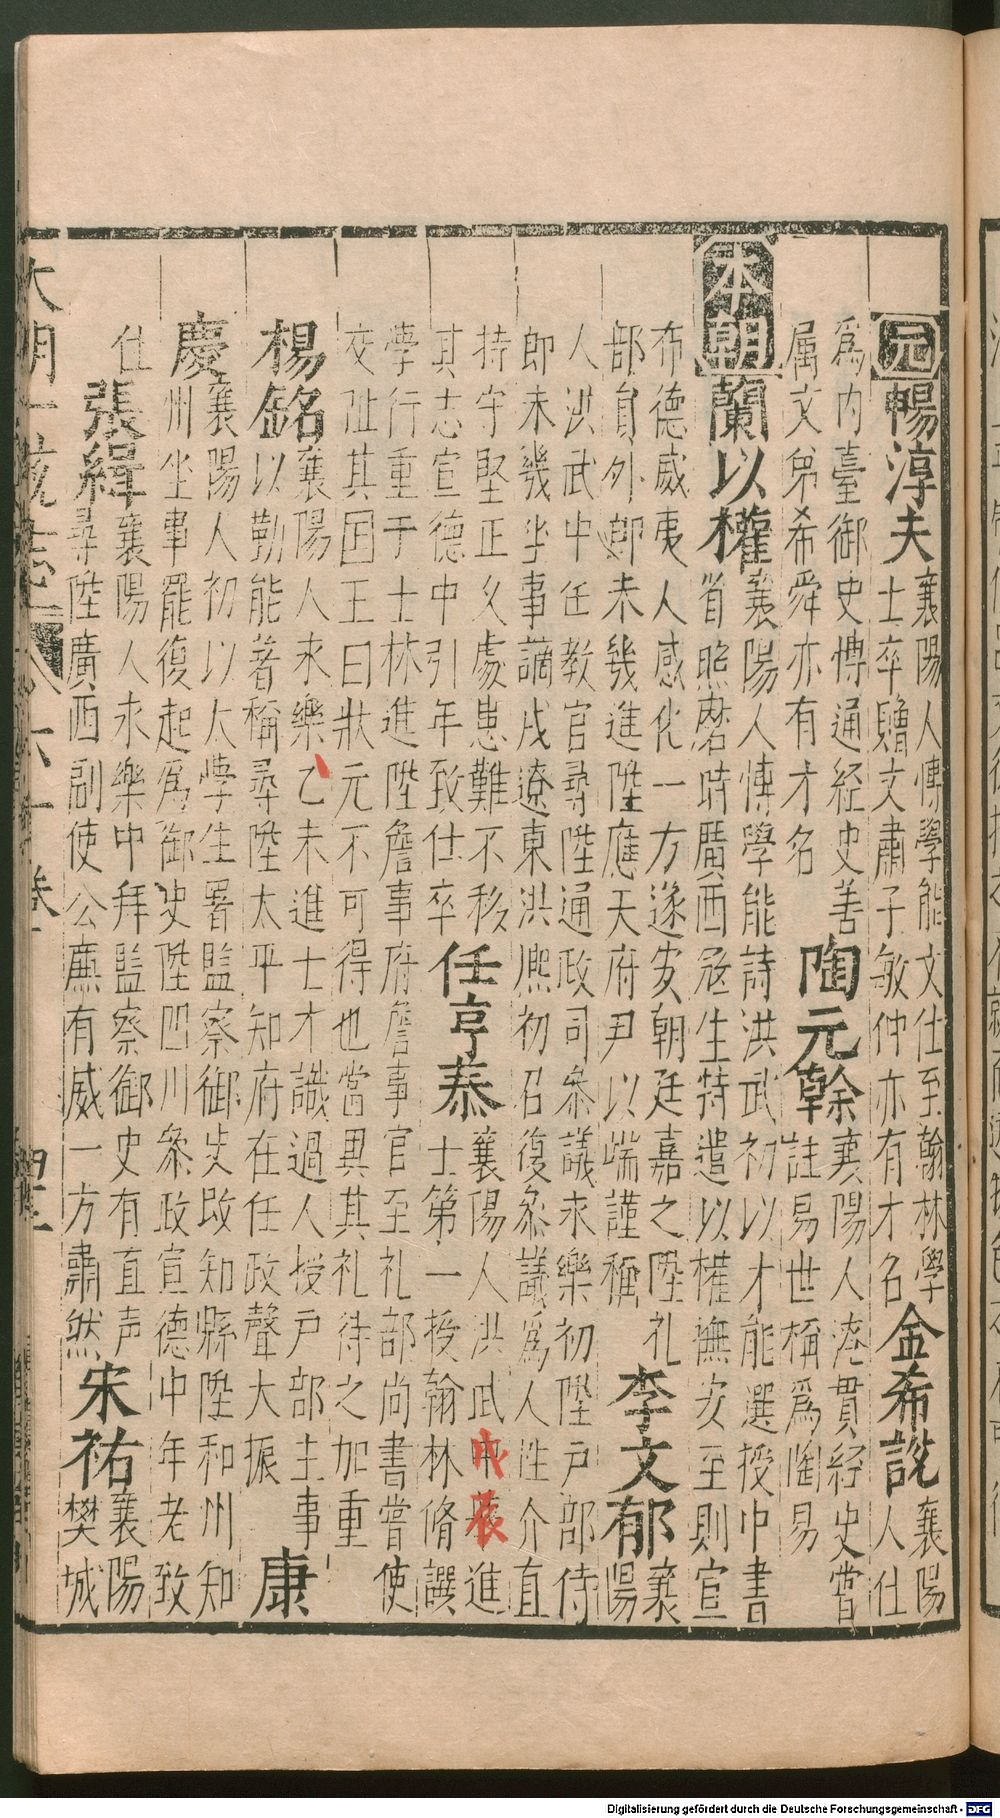 元 暢淳夫 襄陽人博學能文仕至翰林學
士卒贈文肅子敏仲亦有才名 金希說 襄陽
人仕
為内臺御史博通経史善
属文弟希舜亦有才名 陶元幹 襄陽人淹貫経史嘗
註易世稱為陶易
本朝 蘭以權 襄陽人博學能詩洪武初以才能選授中書
省照磨時廣西冦生特遣以權撫安至則宣
布德威夷人感化一方遂安朝廷嘉之陞礼
部員外郎未幾進陞應天府尹以端謹稱 李文郁 襄
陽
人洪武中任教官尋陞通政司叅議永樂初陞戸部侍
郎未幾坐事謫戍遼東洪熈初召復叅議為人性介直
持守堅正久處患難不移
其志宣德中引年致仕卒 任亨泰 襄陽人洪武戊辰進
士第一授翰林脩譔
學行重于士林進陞詹事府詹事官至礼部尚書嘗使
交阯其国王曰狀元不可得也當異其礼待之加重
楊銘 襄陽人永樂乙未進士才識過人授戸部主事
以勤能著稱尋陞太平知府在任政聲大振 康
慶 襄陽人初以太學生署監察御史改知縣陞和州知
州坐事罷復起為御史陞四川叅政宣德中年老致
仕 張緝 襄陽人永樂中拜監察御史有直声
尋陞廣西副使公廉有威一方肅然 宋祐 襄陽
樊城
大明一統志 六十卷 四十二
Digitalisierung gefördert durch die Deutsche Forschungsgemeinschaft - DFG